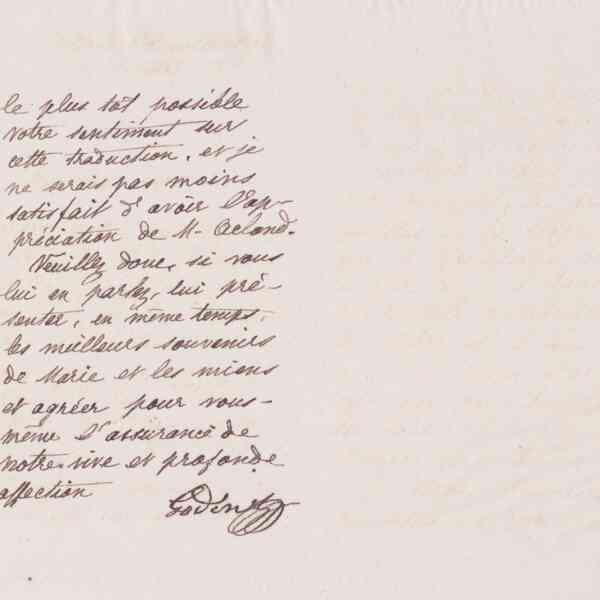 le plus tôt possible
votre sentiment sur
cette traduction, et je
ne serais pas moins
satisfait d'avoir l'ap-
préciation de M- Acland.
Veuillez donc, si vous
lui en parlez, lui pré-
senter, en même temps,
les meilleurs souvenirs
de Marie et les miens
et agréer pour vous-
même l'assurance de
notre vive et profonde
affection
Godinet